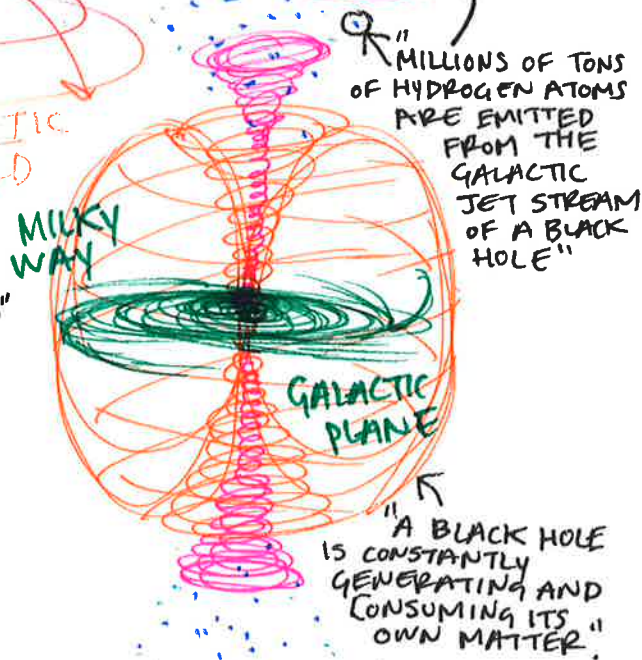 "MILLIONS OF TONS
OF HYDROGEN ATOMS
ARE EMITTED
FROM THE
GALACTIC
JET STREAM
OF A BLACK
HOLE"
TIC
MILKY
WAY
"
GALACTIC
PLANE
"A BLACK HOLE
IS CONSTANTLY
GENERATING AND
CONSUMING ITS
OWN MATTER".